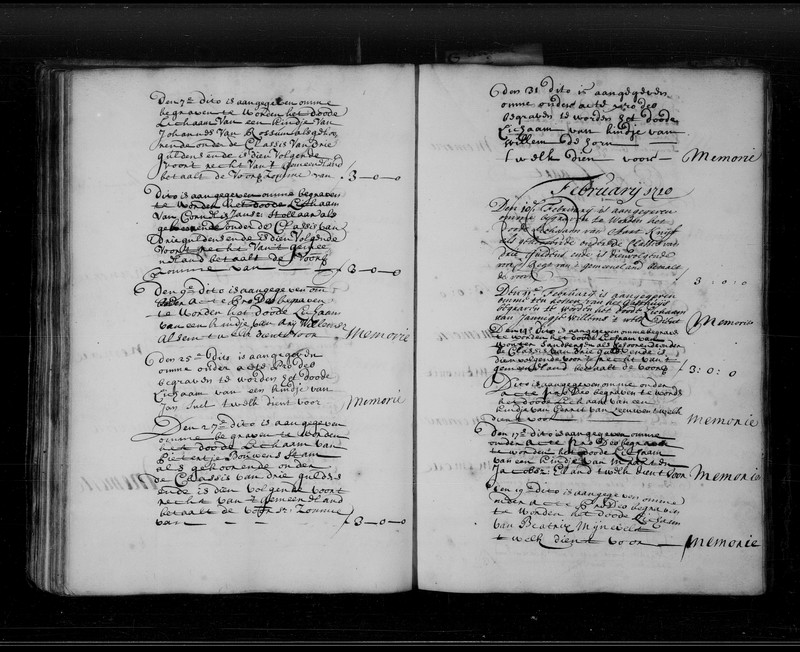 Den 7e dito is aangegeven omme
begraven te worden het doode
Lichaam van een kindje van
Johannes van Rossum als gehoo
rende onder de Classis van drie
guldens ende is dien volgende
voort recht van 't gemeenland
betaalt de voorsz somme van 3-0-0
dito is aangegeven omme begraven
te worden het doode Lichaam
van Cornelis Janse Stollaar als
gehoorende onder de Classis van
drie guldens ende is dien volgende
voort recht van 't gemee
nland betaalt de voorsz
somme van 3-0-0
den 9e dito is aangegeven om
acte pro Deo begraven
te worden het doode Lichaam
van een kindje van Ary Willemsz
t welk dient voor Memorie
den 25en dito is aangegeven
omme onder acte pro Deo
begraven te worden het doode
Lichaam van een kindje van
Jan Snel t welk dient voor Memorie
Den 27e dito is aangegeven
omme begraven te worden
het doode Lichaam van
Pietertje Bouwens Stam
als gehoorende onder
de Classis van drie guldens
ende is dien volgende voort
recht van 't gemeenland
betaalt de voorsz. somme
van 3-0-0
den 31 dito is aangegeven
omme onder acte pro deo
begraven te worden het doode
Lichaam van kindje van
Willem de Hoorn
t welk dient voor Memorie
February 1710
Den 10e February is aangegeven
omme begraven te worden het
doode Lichaam van Aart Knijff
als gehoorende onder de Classis van
drie guldens ende is dienvolgende
voor 't regt van 't gemeeneland betaalt
de voorsz 3:0:0
Den February is aangegeven
omme ten kosten van het Gasthuijs
begraven te worden het doode Lichaam
van Jannigje Willems t welk dient Memorie
Den dito is aangegeven omme begrave
te worden het doode Lichaam van
als gehoorende onder
de Classis van drie guldens ende is
dien volgende voort recht van t
gemeenland betaalt de voorsz 3:0:0
Dito is aangegeven omme onder
acte pro Deo begraven te word
het doode Lichaam van een
kindje van Gerrit van Leeuwen t welk
dient voor Memorie
den 17e dito is aangegeven omme
onder acte pro Deo begraven
te worden het doode Lichaam
van een kindje van
Jacobsz t welk dient voor Memorie
Den 19 dito is aangegeven omme
onder acte pro Deo begraven
te worden het doode Lichaam
van Beatrix Mijnvelt
t welk dient voor Memorie